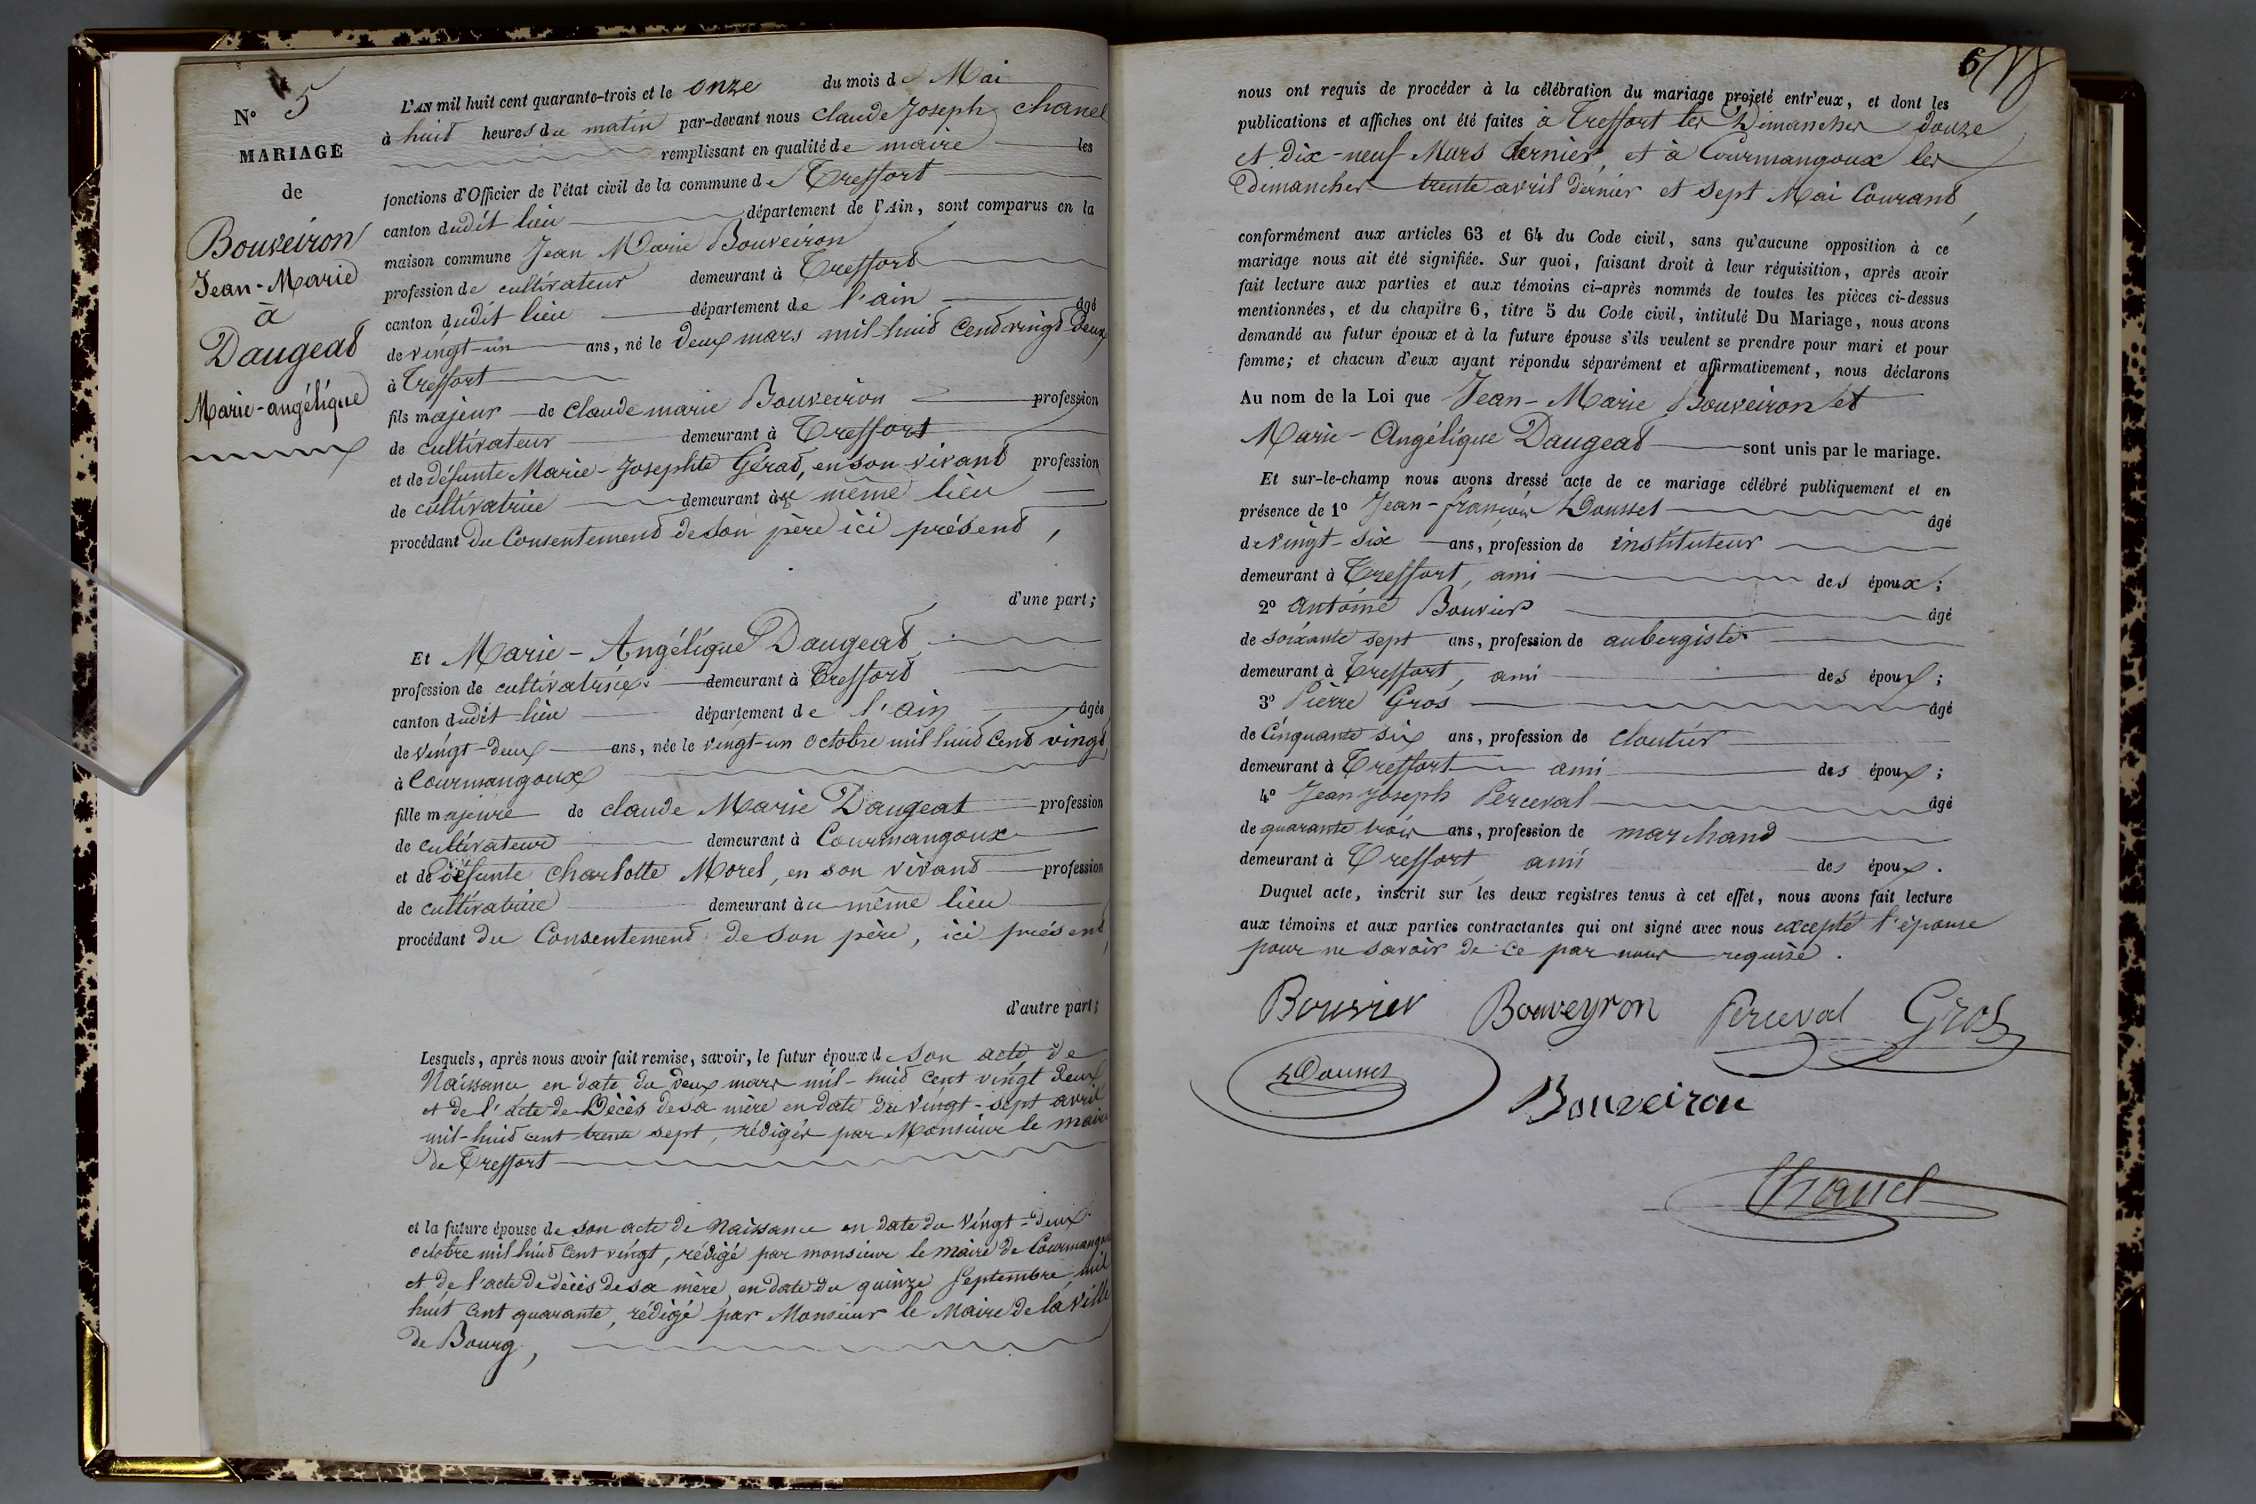 N° 5
MARIAGE
de
Bouveiron
Jean-Marie
à
Daugeat
Marie-angélique
L'AN mil huit cent quarante-trois et le onze du mois de Mai
à huit heures du matin par-devant nous Claude Joseph Chanel
remplissant en qualité de maire les
fonctions d'Officier de l'état civil de la commune de Treffort
canton dudit lieu département de l'Ain, sont comparus en la
maison commune Jean Marie Bouveiron
profession de cultivateur demeurant à Treffort
canton dudit lieu département de l'ain âgé
de vingt-un ans, né le deux mars mil huit cent vingt-deux
à Treffort
fils majeur de Claude marie Bouveiron profession
de cultivateur demeurant à Treffort
et de défunte Marie-Josephte Gérat, en son vivant profession
de cultivatrice demeurant au même lieu
procédant du Consentement de son père ici présent,
d'une part;
Et Marie-Angélique Daugeat
profession de cultivatrice demeurant à Treffort
canton dudit lieu département de l'ain âgée
de vingt-deux ans, née le vingt-un octobre mil huit cent vingt
à Courmangoux
fille majeure de claude Marie Daugeat profession
de cultivateur demeurant à Courmangoux
et de défunte Charlotte Morel, en son vivant profession
de cultivatrice demeurant au même lieu
procédant du Consentement de son père, ici présent,
d'autre part;
Lesquels, après nous avoir fait remise, savoir, le futur époux de son acte de
Naissance en date du deux mars mil-huit cent vingt deux
et de l'acte de Décès de sa mère en date du vingt-sept avril
mil-huit cent trente sept, rédigés par Monsieur le maire
de Treffort
et la future épouse de son acte de Naissance en date du vingt-deux
octobre mil huit cent vingt, rédigé par monsieur le maire de Courmangoux
et de l'acte de décès de sa mère, en date du quinze Septembre mil
huit cent quarante, rédigé par Monsieur le Maire de la ville
de Bourg,
6
nous ont requis de procéder à la célébration du mariage projeté entr'eux, et dont les
publications et affiches ont été faites à Treffort les Dimanches douze
et Dix-neuf Mars dernier, et à Courmangoux les
Dimanches trente avril dernier et sept Mai Courant,
conformément aux articles 63 et 64 du Code civil, sans qu'aucune opposition à ce
mariage nous ait été signifiée. Sur quoi, faisant droit à leur réquisition, après avoir
fait lecture aux parties et aux témoins ci-après nommés de toutes les pièces ci-dessus
mentionnées, et du chapitre 6, titre 5 du Code civil, intitulé Du Mariage, nous avons
demandé au futur époux et à la future épouse s'ils veulent se prendre pour mari et pour
femme; et chacun d'eux ayant répondu séparément et affirmativement, nous déclarons
Au nom de la Loi que Jean-Marie Bouveiron et
Marie-Angélique Daugeat sont unis par le mariage.
Et sur-le-champ nous avons dressé acte de ce mariage célébré publiquement et en
présence de 1° Jean-françois Dousset âgé
de vingt-six ans, profession de instituteur
demeurant à Treffort, ami des époux;
2° antoine Bouvier âgé
de soixante sept ans, profession de aubergiste
demeurant à Treffort, ami des époux;
3° Pierre Gros âgé
de Cinquante six ans, profession de cloutier
demeurant à Treffort ami des époux;
4° Jean Joseph Perceval âgé
de quarante trois ans, profession de marchand
demeurant à Treffort, ami des époux.
Duquel acte, inscrit sur les deux registres tenus à cet effet, nous avons fait lecture
aux témoins et aux parties contractantes qui ont signé avec nous excepté l'épouse
pour ne savoir de ce par nous requise.
Bouvier Bouveyron Perceval Gros
Dousset Bouveiron
Chanel